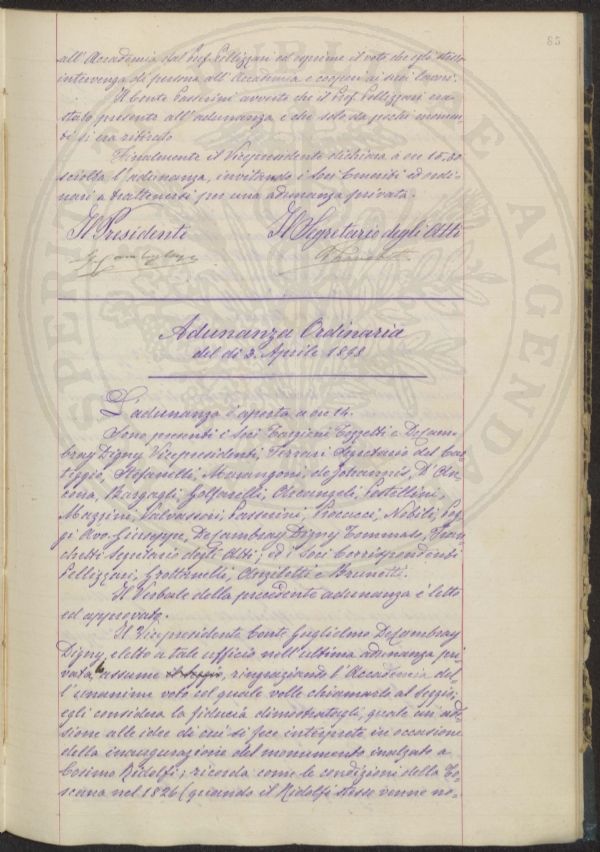 85
all'Accademia dal Prof. Pellizzari ed esprime il voto che egli stesso
intervenga di persona all'Accademia e cooperi ai suoi lavori.
Il Conte Passerini avverte che il Prof. Pellizzari era
stato presente all'adunanza e che solo da pochi momen-
ti si era ritirato
Finalmente il Vicepresidente dichiara a ore 15.30
sciolta l'adunanza, invitando i Soci Emeriti ed ordi-
nari a trattenersi per una adunanza privata.
Il Presidente Il Segretario degli Atti
Adunanza Ordinaria
del dì 3. Aprile 1898
L'adunanza è aperta a ore 14.
Sono presenti i Soci Targioni Tozzetti e DeCam-
bray Digny Vicepresidenti, Ferrari Segretario del Car-
teggio, Stefanelli, Marangoni, de Johannis, D'An-
cona, Bargagli, Golfarelli, Arcangeli, Pestellini,
Mazzini, Valvassori, Passerini, Piccucci, Nobili, Pog-
gi Avv. Giuseppe, DeCambray Digny Tommaso, Fran-
chetti Segretario degli Atti; ed i Soci Corrispondenti
Pellizzari, Grottanelli, Angiletti e Brunetti.
Il Verbale della precedente adunanza è letto
ed approvato.
Il Vicepresidente Conte Guglielmo DeCambray
Digny, eletto a tale ufficio nell'ultima adunanza pri-
vata, lo assume il seggio, ringraziando l'Accademia del-
l'unanime voto col quale volle chiamarlo al seggio;
egli considera la fiducia dimostratagli, quale un'ade-
sione alle idee di cui si fece interprete in occasione
della inaugurazione del monumento inalzato a
Cosimo Ridolfi; ricorda come le condizioni della To-
scana nel 1826 (quando il Ridolfi stesso venne no-